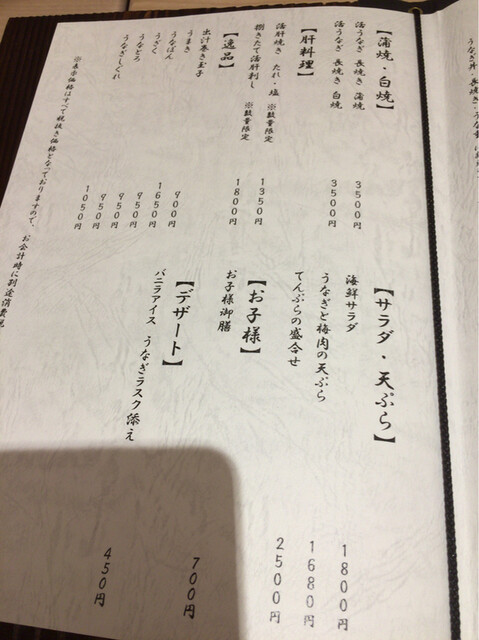 うなぎ丼・長焼き・うな重
【蒲焼・白焼】
活うなぎ 長焼き 蒲焼 3500円
活うなぎ 長焼き 白焼 3500円
【肝料理】
活肝焼き たれ・塩 ※数量限定 1350円
捌きたて活肝刺し ※数量限定 1800円
【逸品】
出汁巻き玉子 900円
うまき 1650円
950円
うざく 950円
うなとろ 950円
うなぎしぐれ 1050円
※表示価格はすべて税抜き価格となっておりますので、お会計時に別途消費税
【サラダ・天ぷら】
海鮮サラダ 1800円
うなぎと梅肉の天ぷら 1680円
てんぷらの盛合せ 2500円
【お子様】
お子様御膳 700円
【デザート】
バニラアイス うなぎラスク添え 450円